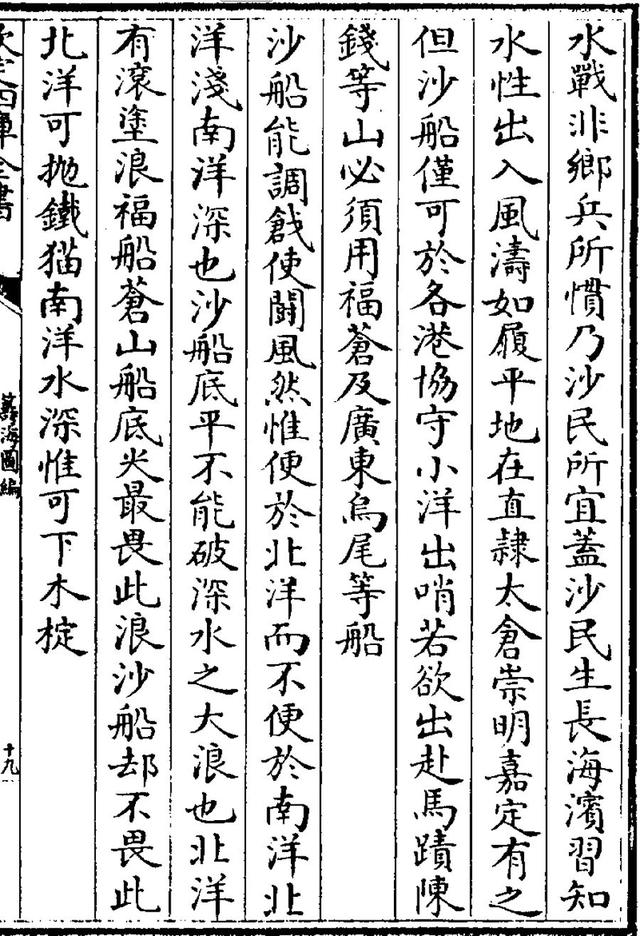 水戰非鄉兵所慣乃沙民所宜蓋沙民生長海濱習知
水性出入風濤如履平地在直隸太倉崇明嘉定有之
但沙船僅可於各港協守小洋出哨若欲出赴馬蹟陳
錢等山必須用福蒼及廣東烏尾等船
沙船能調戧使鬪風然惟便於北洋而不便於南洋北
洋淺南洋深也沙船底平不能破深水之大浪也北洋
有滾塗浪福船蒼山船底尖最畏此浪沙船却不畏此
北洋可抛鐵猫南洋水深惟可下木椗
欽定四庫全書
籌海圖編
十九